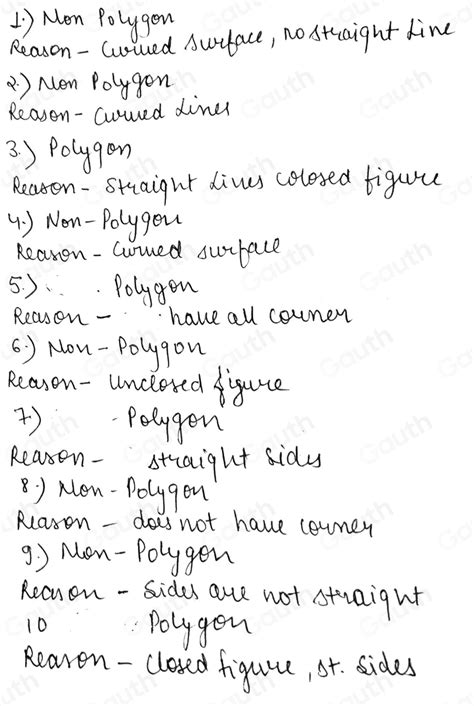 1.) Non Polygon
Reason - Curved surface, no straight Line
2.) Non Polygon
Reason - Curved Lines
3.) Polygon
Reason - Straight Lines colosed figure
4.) Non-Polygon
Reason - Curved surface
5.) Polygon
Reason - have all corner
6.) Non-Polygon
Reason - Unclosed figure
7) Polygon
Reason - straight sides
8.) Non-Polygon
Reason - does not have corner
9.) Non-Polygon
Reason - Sides are not straight
10 Polygon
Reason - Closed figure, st. sides